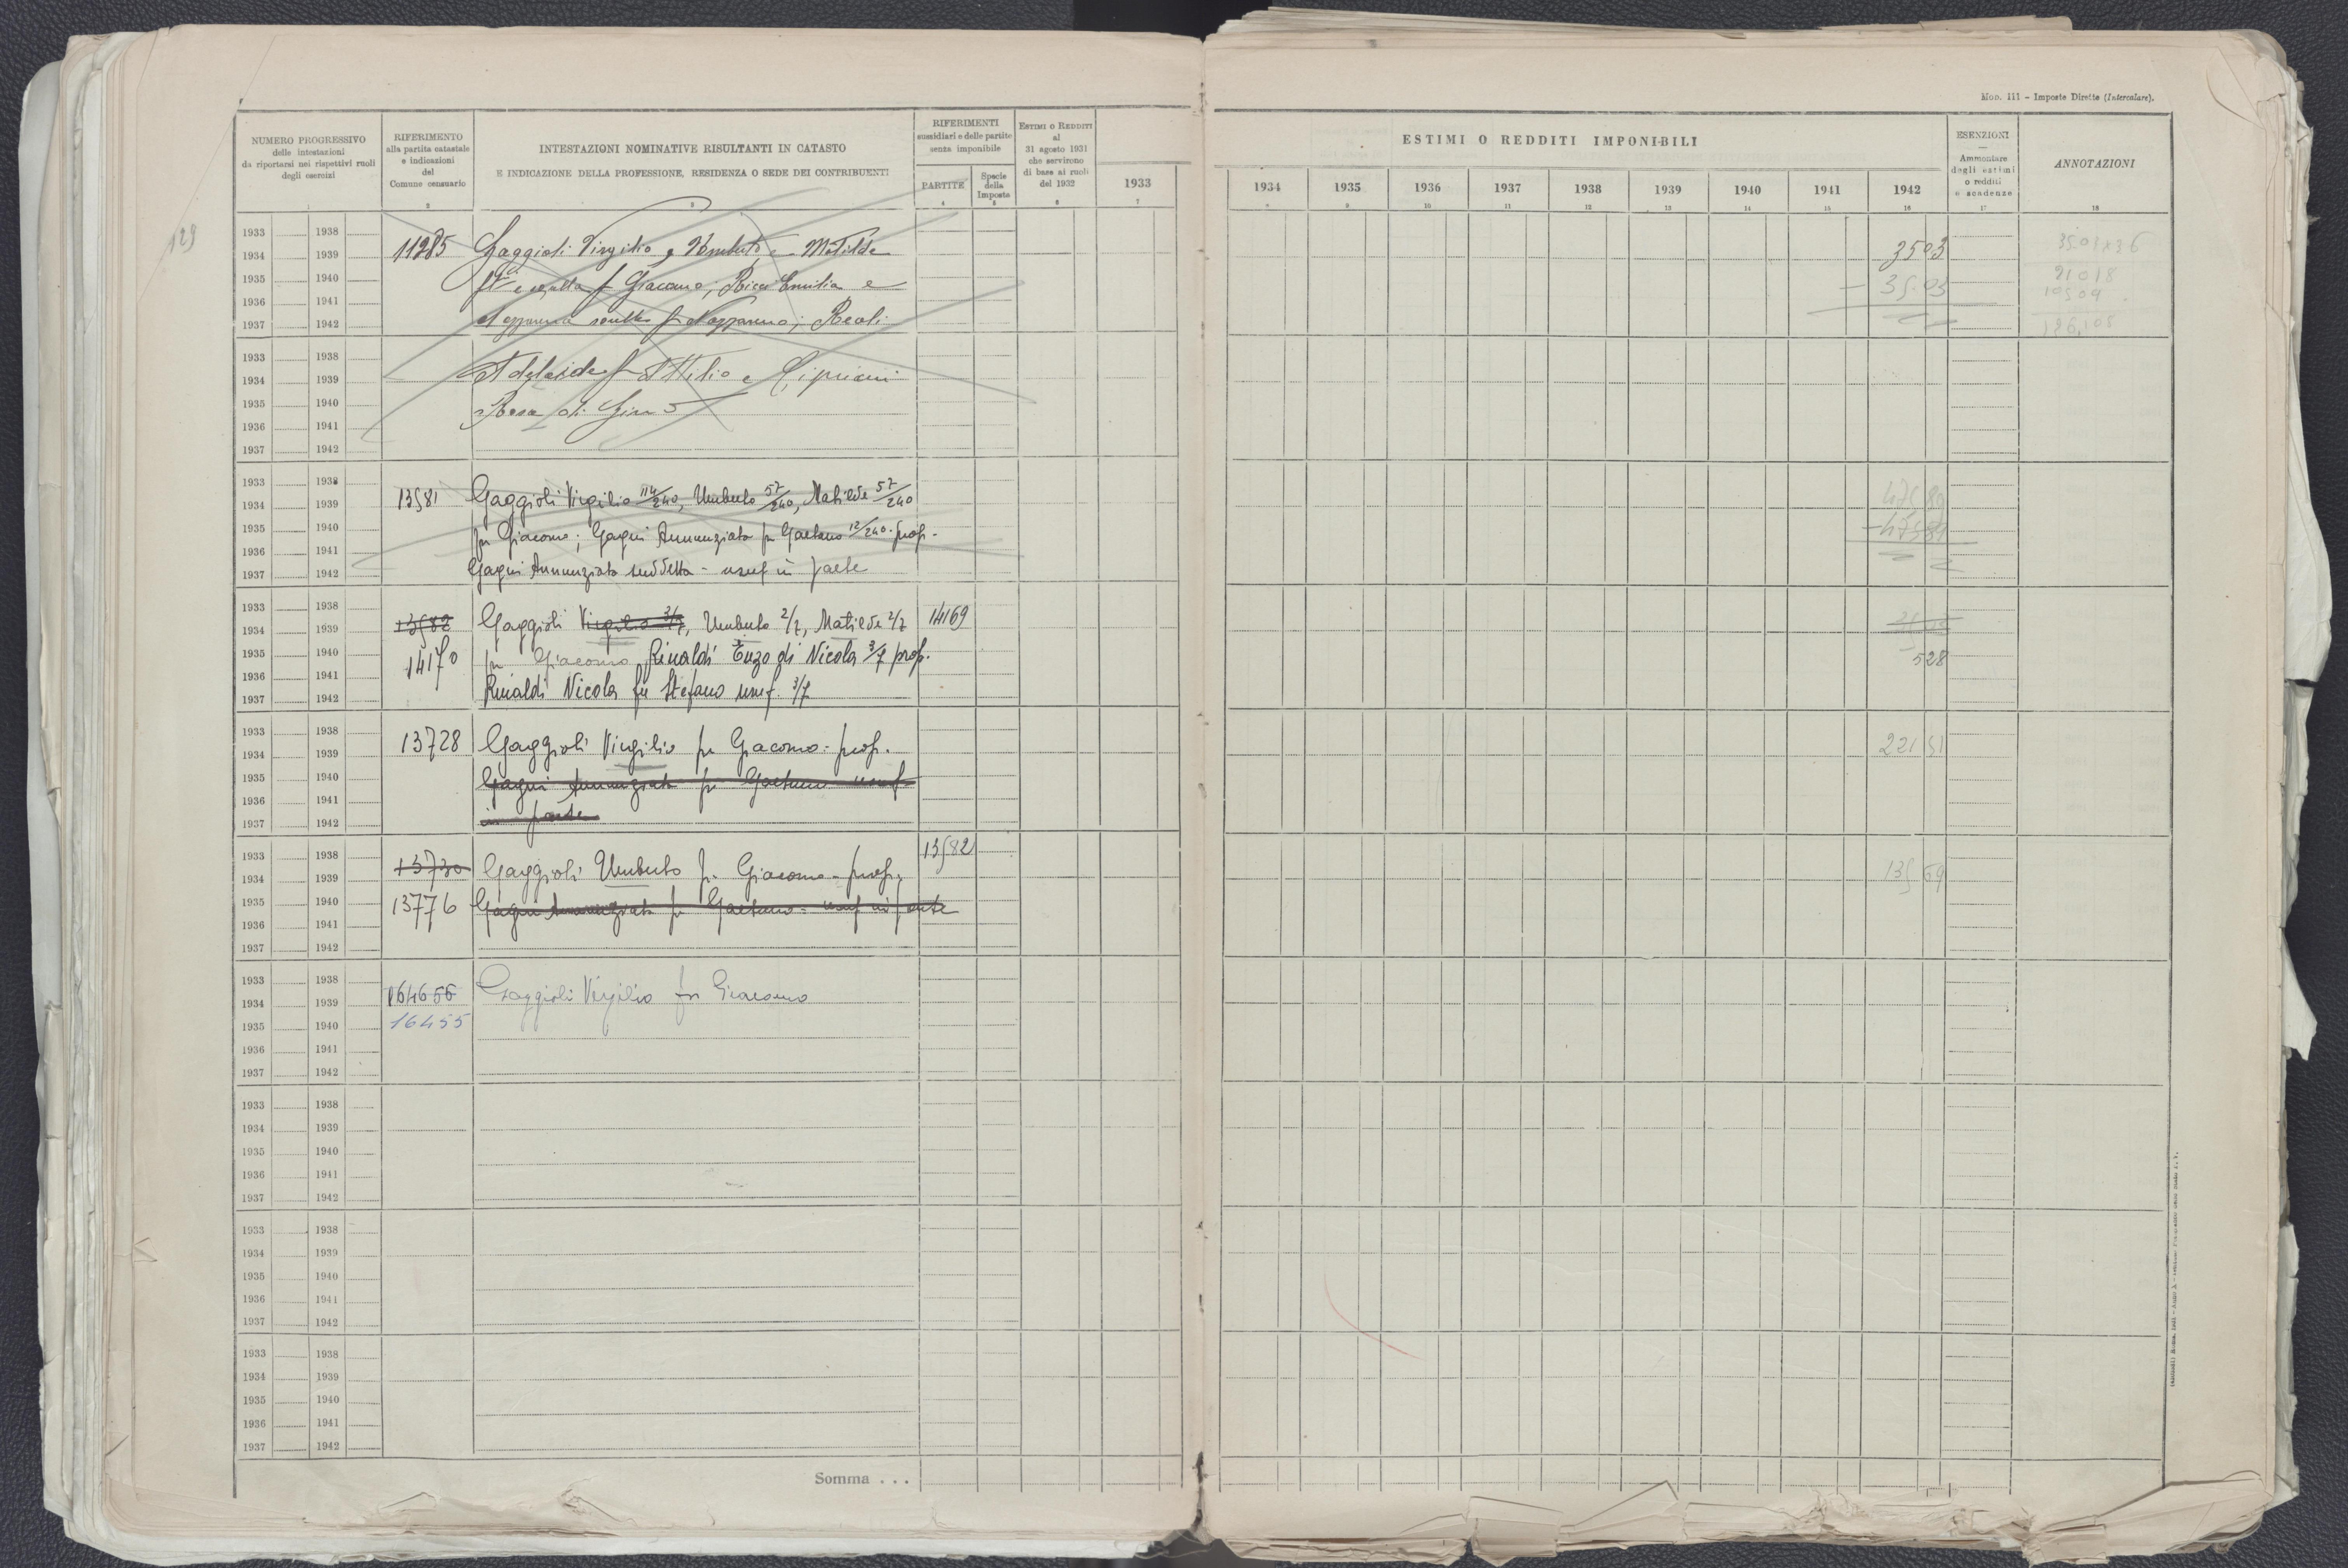 Mod. 111 - Imposte Dirette (Intercalare).
NUMERO PROGRESSIVO
delle intestazioni
da riportarsi nei rispettivi ruoli
degli esercizi
1
RIFERIMENTO
alla partita catastale
e indicazioni
del
Comune censuario
2
INTESTAZIONI NOMINATIVE RISULTANTI IN CATASTO
E INDICAZIONE DELLA PROFESSIONE, RESIDENZA O SEDE DEI CONTRIBUENTI
3
RIFERIMENTI
sussidiari e delle partite
senza imponibile
PARTITE
4
Specie
della
Imposta
5
ESTIMI O REDDITI
al
31 agosto 1931
che servirono
di base ai ruoli
del 1932
6
1933
7
ESTIMI O REDDITI IMPONIBILI
1934 1935 1936 1937 1938 1939 1940 1941 1942
9 10 11 12 13 14 15 16
ESENZIONI
Ammontare
degli estimi
o redditi
e scadenze
17
ANNOTAZIONI
18
129
1933 1938
1934 1939 11285 Gaggioli Virgilio, Umberto e Matilde 3503
3503x36
1935 1940 Giacomo; Ricci Emilia e 35.03
21018
10509
1936 1941
1937 1942 Reali
126,108
1933 1938
1934 1939 Adelaide fu Attilio e Cipriani
1935 1940 Rosa di Gino
1936 1941
1937 1942
1933 1938
1934 1939 13581 Gaggioli Virgilio 114/240, Umberto 57/240, Matilde 57/240 475 89
1935 1940 fu Giacomo; Gagni Annunziata fu Gaetano 12/240 - prop. - 475 89
1936 1941
1937 1942 Gagni Annunziata suddetta - usuf in parte
1933 1938
1934 1939 13582 Gaggioli Virgilio 3/7, Umberto 2/7, Matilde 2/7 14169
1935 1940 14170 fu Giacomo, Rinaldi Enzo di Nicola 3/7 prop. 528
1936 1941
1937 1942 Rinaldi Nicola fu Stefano usuf. 3/7
1933 1938
1934 1939 13728 Gaggioli Virgilio fu Giacomo - prop. 221 51
1935 1940 Gagni Annunziata fu Gaetano usuf
1936 1941
1937 1942 in parte
1933 1938 13582
1934 1939 13730 Gaggioli Umberto fu Giacomo - prop. 135 69
1935 1940 13776 Gagni Annunziata fu Gaetano - usuf in parte
1936 1941
1937 1942
1933 1938
1934 1939 Gaggioli Virgilio fu Giacomo
1935 1940 16455
1936 1941
1937 1942
1933 1938
1934 1939
1935 1940
1936 1941
1937 1942
1933 1938
1934 1939
1935 1940
1936 1941
1937 1942
1933 1938
1934 1939
1935 1940
1936 1941
1937 1942
Somma . . .